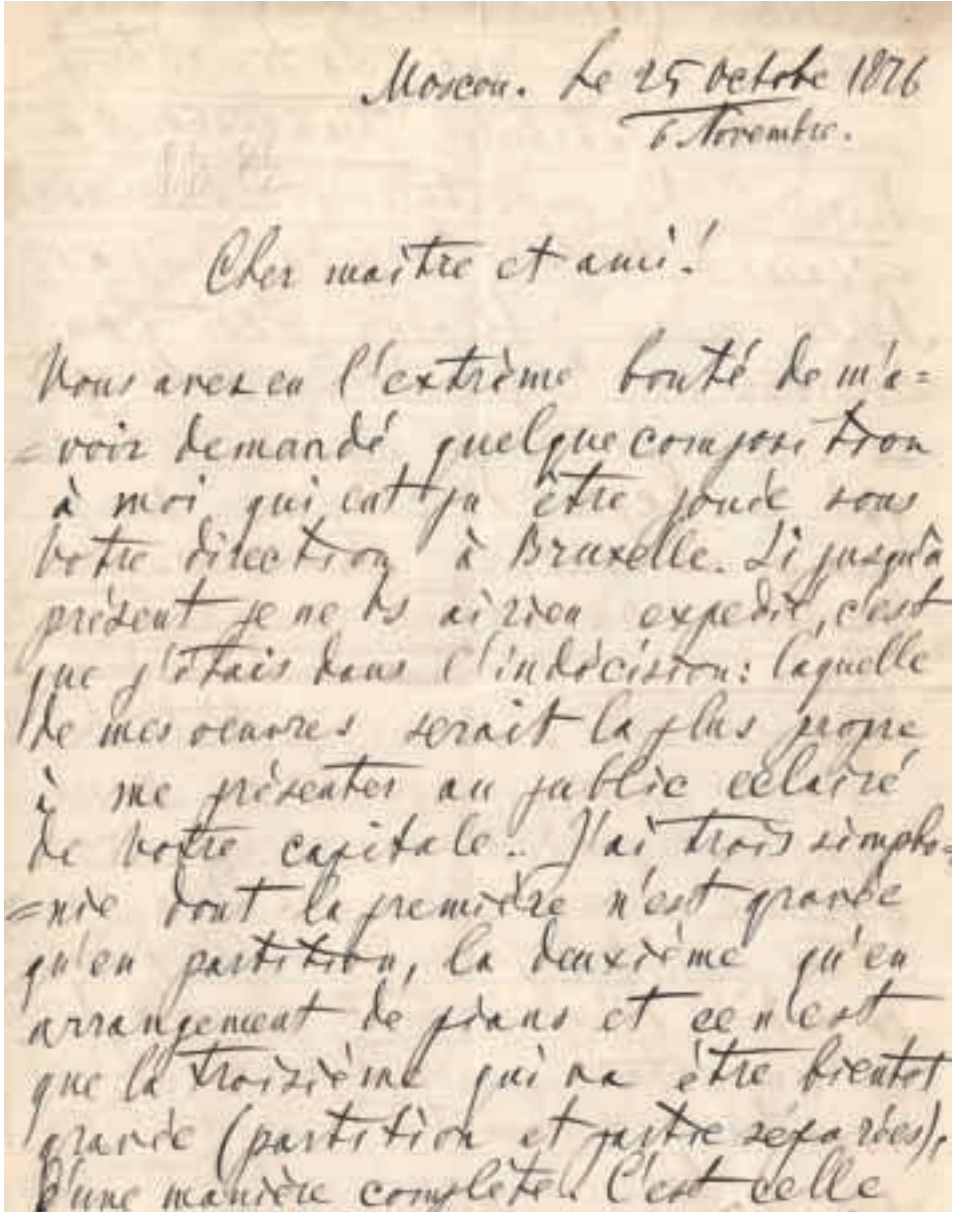 Moscou. Le 25 Octobe 1876
6 Novembre.
Cher maître et ami!
Vous avez eu l'extrème bonté de m'a=
=voir demandé quelque composition
à moi qui eut pu être jouée sous
votre direction à Bruxelle. Si jusqu'à
présent je ne ai rien expedié, c'est
que j'étais dans l'indécision: laquelle
de mes oeuvres serait la plus propre
à me présenter au public eclairé
de votre capitale.. J'ai trois simpho=
=nie dont la première n'est gravée
qu'en partition, la deuxième qu'en
arrangement de piano et ce n'est
que la troisième qui va être bientot
gravée (partition et partie séparées),
d'une manière complète. C'est celle